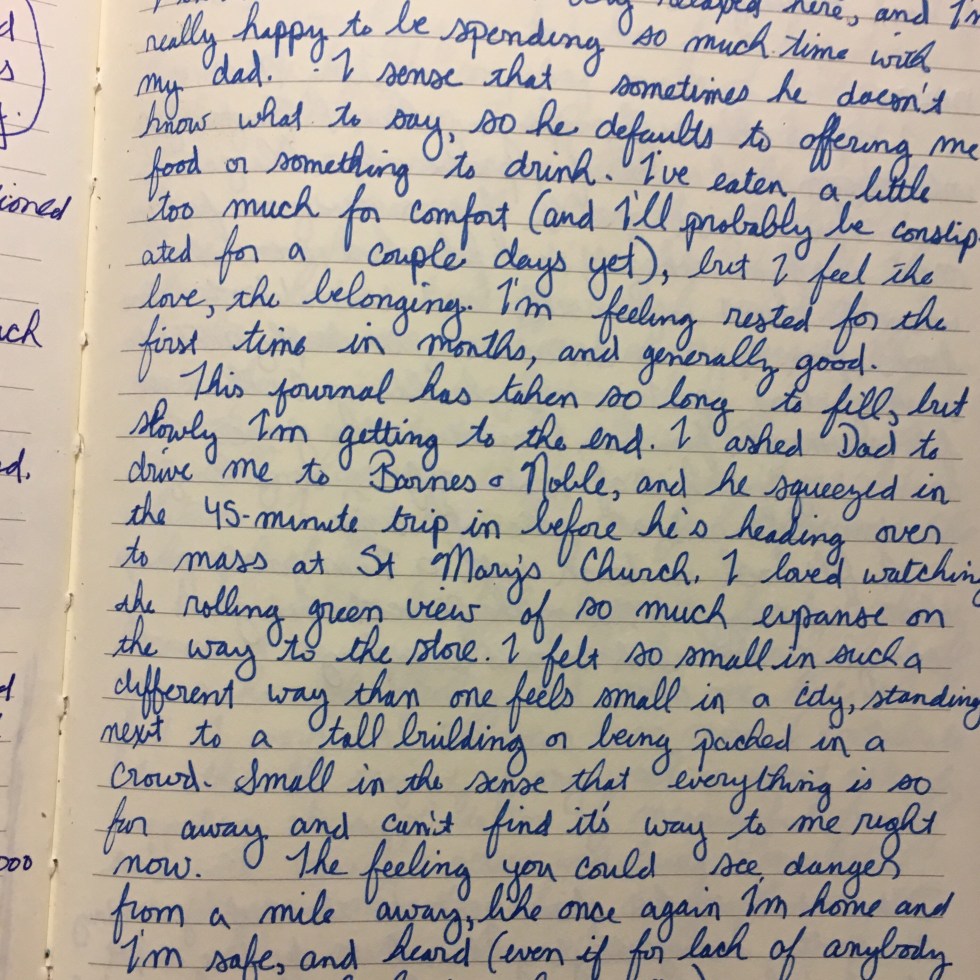 here, and I'm
really happy to be spending so much time with
my dad. I sense that sometimes he doesn't
know what to say, so he defaults to offering me
food or something to drink. I've eaten a little
too much for comfort (and I'll probably be constip-
ated for a couple days yet), but I feel the
love, the belonging. I'm feeling rested for the
first time in months, and generally good.
This journal has taken so long to fill, but
slowly I'm getting to the end. I asked Dad to
drive me to Barnes & Noble, and he squeezed in
the 45-minute trip in before he's heading over
to mass at St Mary's Church. I loved watching
the rolling green view of so much expanse on
the way to the store. I felt so small in such a
different way than one feels small in a city, standing
next to a tall building or being packed in a
crowd. Small in the sense that everything is so
far away and can't find it's way to me right
now. The feeling you could see danger
from a mile away, like once again I'm home and
I'm safe, and heard (even if for lack of anybody